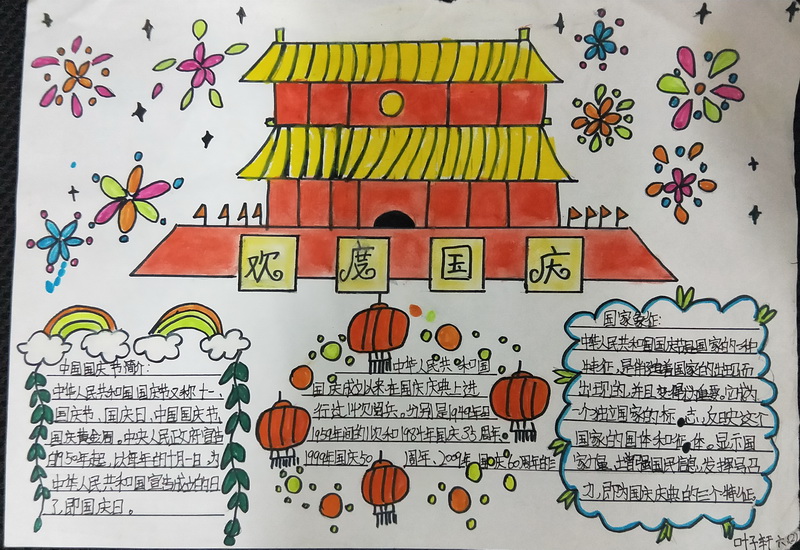 欢度国庆
中国国庆节简介:
中华人民共和国国庆节又称十一、
国庆节、国庆日、中国国庆节、
国庆黄金周。中央人民政府宣告
的1950年起,以每年的十月一日,为
中华人民共和国宣告成立的日
子,即国庆日。
中华人民共和国
国庆成立以来在国庆庆典上进
行过14次阅兵。分别是1949年至
1959年间的11次和1984年国庆35周年、
1999年国庆50周年、2009年国庆60周年的
国家象征:
中华人民共和国国庆节是国家的一种
特征,是伴随着国家的出现而
出现的,并且变得尤为重要。它成为
一个独立国家的标志,反映这个
国家的国体和政体。显示国
家力量、增强国民信心,发挥号召
力,即为国庆庆典的三个特征
叶子轩